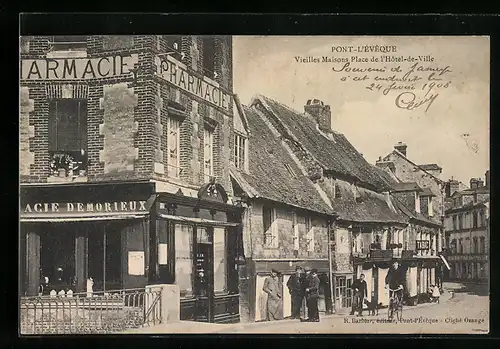 PONT-L'ÉVÊQUE
Vieilles Maisons Place de l'Hôtel-de-Ville
Souvenir de
24 février 1906
PHARMACIE
ARMACIE
ACIE DEMORIEUX
R. Barbier, éditeur, Pont-l'Évêque — Cliché Orange